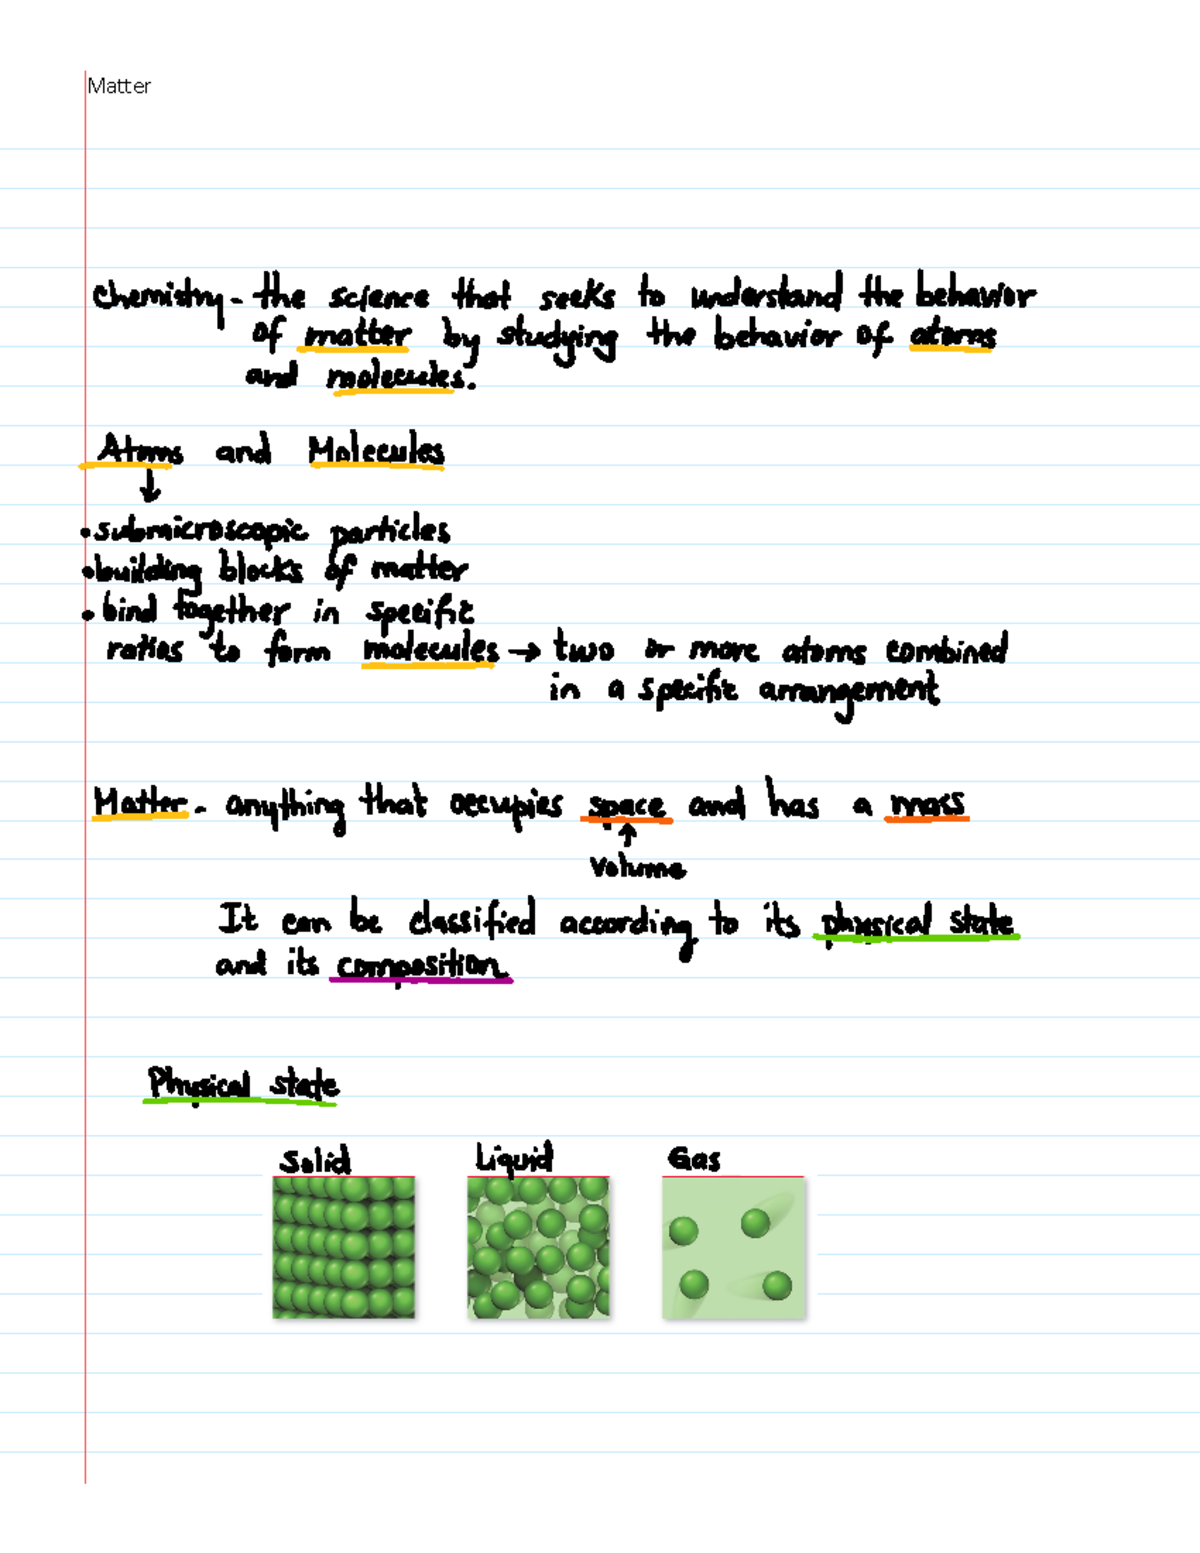 Matter
Chemistry - the science that seeks to understand the behavior
of matter by studying the behavior of atoms
and molecules.
Atoms and Molecules
↓
• submicroscopic particles
• building blocks of matter
• bind together in specific
ratios to form molecules → two or more atoms combined
in a specific arrangement
Matter - anything that occupies space and has a mass
↑
volume
It can be classified according to its physical state
and its composition
Physical state
Solid Liquid Gas